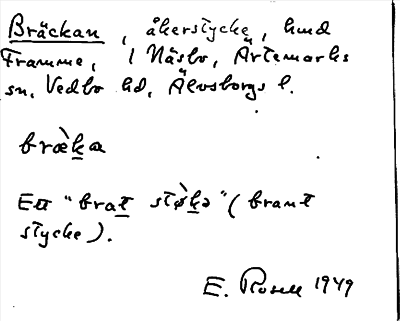 Bräckan, åkerstycke, hmd
Framme, i Näsbo, Ärtemarks
sn, Vedbo hd, Älvsborgs l.
bræ̀ka
Ett "brat stø̀kə" (brant
stycke).
E. Rosell 1949